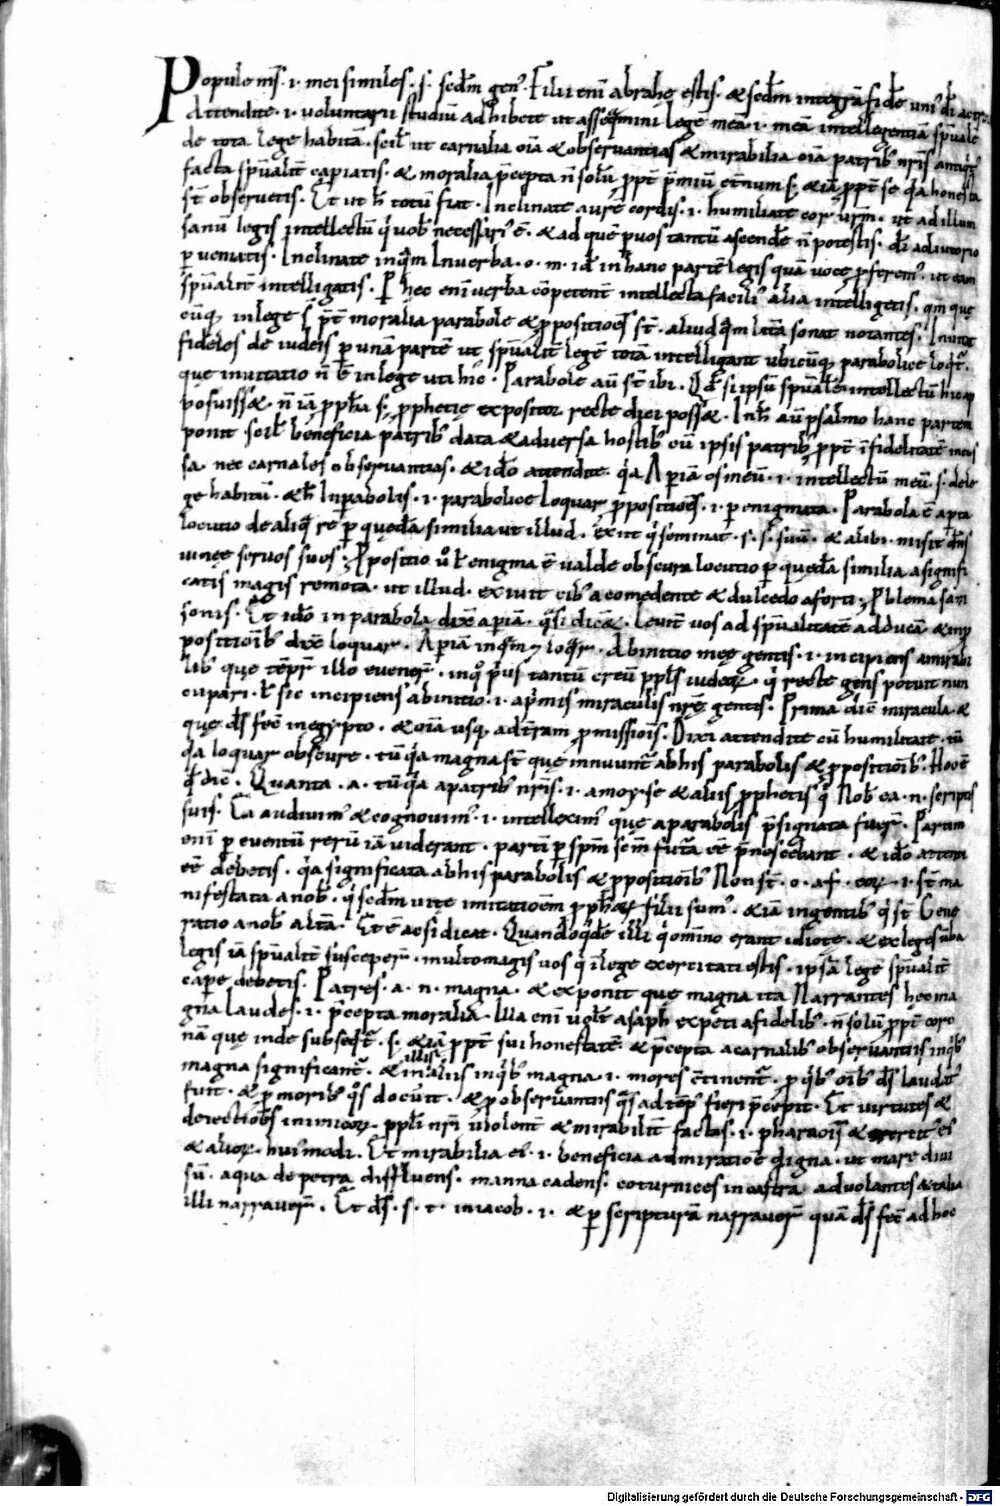 Populē ms̄. i. mei similes. s. scd̄m gen̄. Filii eni abrahę estis. & scd̄m integrā fidē uni dī
Attendite. i. voluntarii studiū adhibete ut assequimini Lege meā. i. meā intelligentiā spualē
de tota lege habitā. scil ut carnalia oīa & observantias & mirabilia oīa patrib nrīs antiq
facta spūalit capiatis. & moralia p̄cepta n̄ solū ppt p̄miū et̄num s; & iā ppt se q̄a honesta
st̄ observetis. Et ut h̄ totū fiat. Inclinate aurē cordis. i. humiliate cor ur̄m. ut ad illum
sanū legis intellectū q̄ uob necessari ē. & ad quē p uos tantū ascende n̄ potestis. dī adiutorio
p ueniatis. Inclinate inqm In uerba. o. m. id in hanc partē legis quā uoce pferem. ut eam
spūalit intelligatis. P hec enī uerba cōpetent intellecta facili alia intelligetis. qm que
cūq; in lege st̄ p̄t moralia parabole & ppositioēs st̄. aliud qm litā sonat notantes. Inuitat
fideles de iudeis p unā partē ut spūalit legē totā intelligant ubicūq; parabolice loqt̄.
que inuitatio n̄ ē in lege uti hic. Parabole aū st̄ ibi. Qd si ipsū spūalē intellectū hic ap
posuiss&. n̄ iā ppha s; pphetie expositor recte dici poss&. In h̄ aū psalmo hanc partem
ponit scil beneficia patrib data & aduersa hostib cū ipsis patrib ppt īfidelitatē
sa. nec carnales observantias. & idō attendite. q̄a Apiā os meū. i. intellectū meū. s. de le
ge habitū. & h̄ In parabolis. i. parabolice Loquar ppositioēs. i. p enigmata. Parabola ē apta
locutio de aliq rē p quedā similia ut illud. Exiit q̄ seminat. s. s. suū. & alibi. misit dn̄s
uineę seruos suos. Ppositio u l enigma ē ualde obscura locutio p quedā similia a signifi
catis magis remota. ut illud. exiuit cib a comedente & dulcedo a forti. Pblema san
sonis. Et idō in parabola dixit apiā. qsi dica. Leuit uos ad spūalitatē adducā & in p
positiōib dixit loquar. Apiā inqm & loqr. Ab initio meę gentis. i. incipiens a mirabi
lib que tēpr illo euener. in q pus tantū certū ppls iudeor. q̄ recte gens potuit nun
cupari. l sic incipiens ab initio. i. a pmis miraculis nr̄ę gentis. Prima dicit miracula. &
que ds fec in egypto. & oīa usq; ad trām pmissiois. Dixi attendite cū humilitate. tū
q̄a loquar obscure. tū q̄a magna st̄ que innuunt ab his parabolis & ppositiōib. Hoc ē
qd dic. Quanta. a. tū q̄a a patrib nrīs. i. a moyse & aliis pphetis q̄ Nob ea. n. scriptis
suis. Ea audiuim & cognouim. i. intelleximus que a parabolis p̄signata fuer. Partim
enī p euentū rerū iā uiderant. parti p spm scm futa ee p̄noscebant. & idō attenti
ee debetis. q̄a significata ab his parabolis & ppositiōib Non st̄. o. a f. eor. i. st̄ ma
nifestata a nob. q̄ scdm uitę imitatioem pphar filii sum. & iā in gentib q̄ st̄ Gene
ratio a nob alta. Et ē ac si dicat. Quandoqde illi q̄ omino erant idiote. & ex lege
legis iā spūalit susceper. multo magis uos q̄ i lege exercitati estis. ipsā legē spūalit
cape debetis. Patres. a. n. magna. & exponit que magna ita Narrantes hec ma
gna Laudes. i. p̄cepta moralia. Illa enī uolt asaph expeti a fidelib. n̄ solū ppt coro
nā que inde subseqt. s. & iā ppt sui honestatē. & p̄cepta a carnalib observantiis inqb
magna significant. & in illis aliis inqb magna. i. mores cōtinent. p qb oīb ds laudat
fuit. & p morib qos docuit. & p observantiis qs ad tep fieri p̄cepit. Et uirtutes &
deiectiōes inimicor. ppli nrī uiolent & mirabilit factas. i. pharaois & exercit ei
& alior. hui modi. Et mirabilia ei. i. beneficia admiratioe digna. ut mare diui
sū. aqua de petra diffluens. manna cadens. coturnices in castra aduolantes & talia
illi narrauer. Et ds. s. t. in iacob. i. & p scripturā narrauer quā ds fec ad hoc
Digitalisierung gefördert durch die Deutsche Forschungsgemeinschaft - DFG